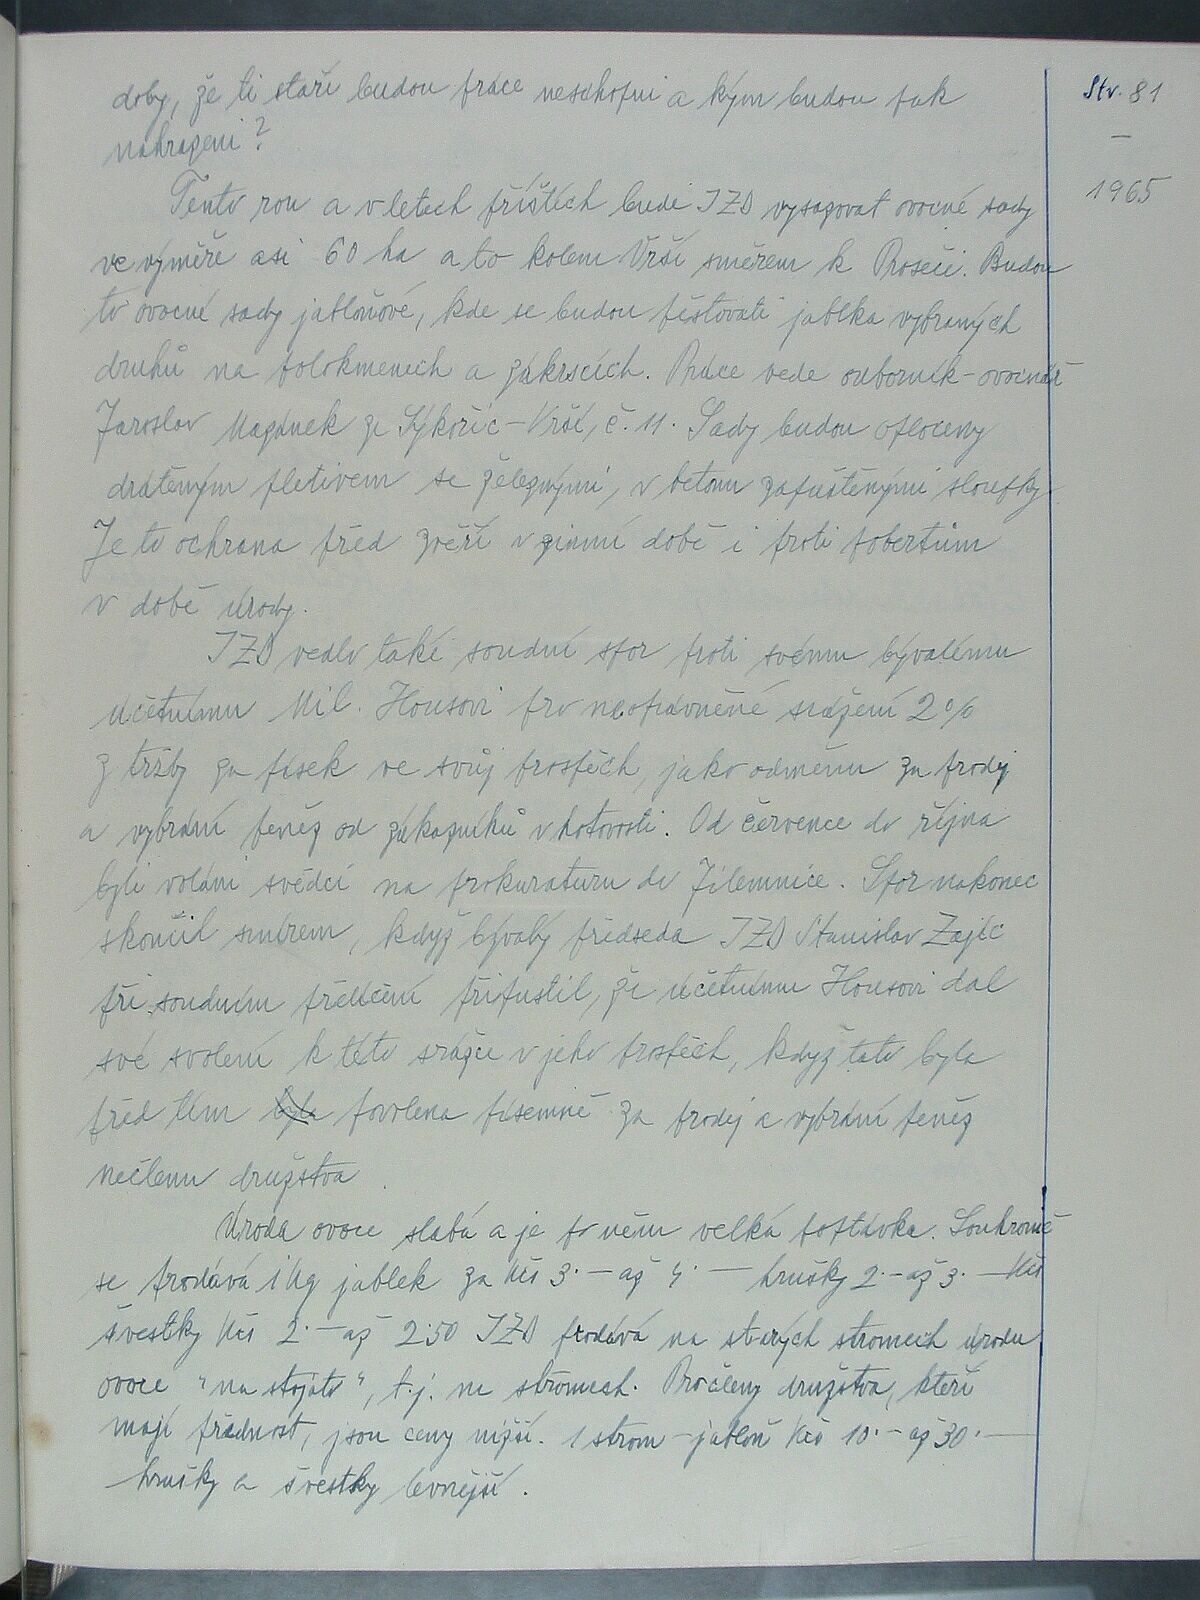 Str. 81
—
1965
doby, že ti staří budou práce neschopni a kým budou pak
nahrazeni?
Tento rok a v letech příštích bude JZD vysazovat ovocné sady
ve výměře asi 60 ha a to kolem Vrší směrem k Proseči. Budou
to ovocné sady jabloňové, kde se budou pěstovati jablka vybraných
druhů na polokmenech a zákrscích. Práce vede odborník-ovocnář
Jaroslav Magánek ze Sýkořic-Vrší, č. 11. Sady budou oploceny
drátěným pletivem se železnými, v betonu zapuštěnými sloupky.
Je to ochrana před zvěří v zimní době i proti pobertům
v době úrody.
JZD vedlo také soudní spor proti svému bývalému
účetnímu Mil. Housovi pro neoprávněné srážení 2%
z tržby za písek ve svůj prospěch, jako odměnu za prodej
a vybrání peněz od zákazníků v hotovosti. Od července do října
byli voláni svědci na prokuraturu do Jilemnice. Spor nakonec
skončil smírem, když bývalý předseda JZD Stanislav Zajíc
při soudním přelíčení připustil, že účetnímu Housovi dal
své svolení k této srážce v jeho prospěch, když tato byla
před tím byla povolena písemně za prodej a vybrání peněz
nečlenu družstva.
Úroda ovoce slabá a je po něm velká poptávka. Soukromě
se prodává 1 kg jablek za Kčs 3.— až 4.— hrušky 2.— až 3.— Kčs
švestky Kčs 2.— až 2.50 JZD prodává na starých stromech úrodu
ovoce "na stojato", t.j. na stromech. Pro členy družstva, kteří
mají přednost, jsou ceny nižší. 1 strom - jabloň Kčs 10.— až 30.—
hrušky a švestky levnější.